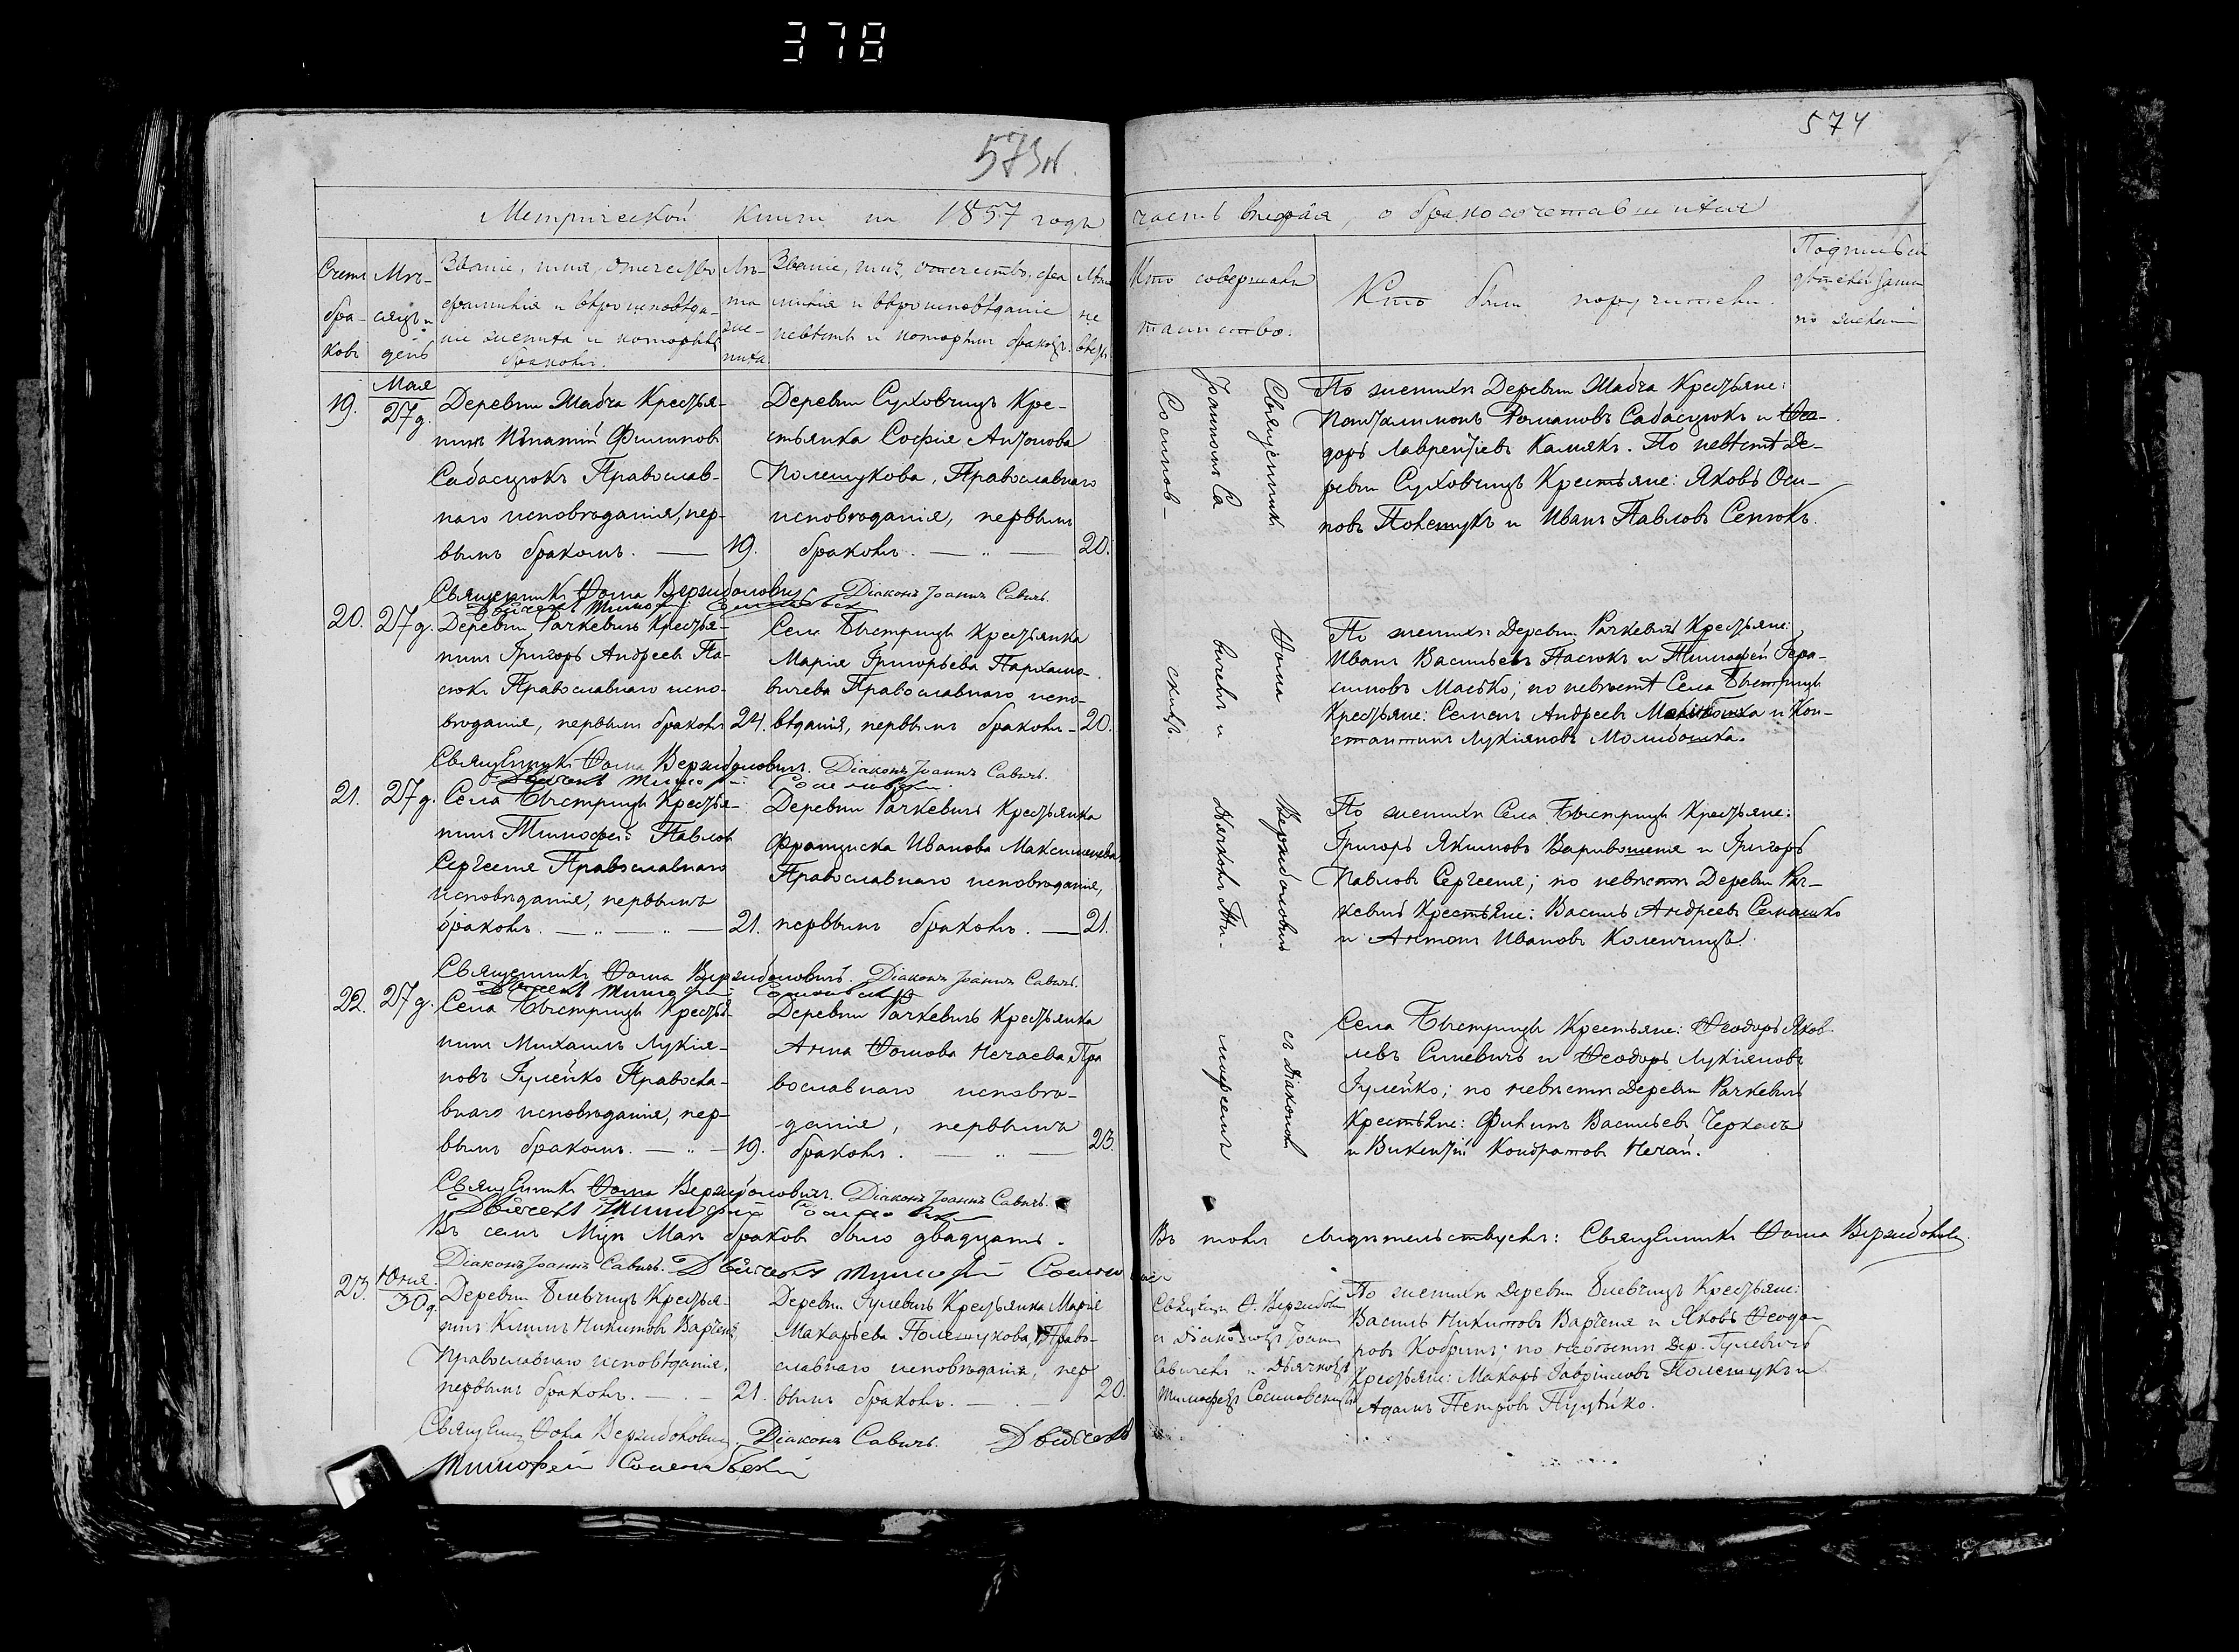 378
574
Метрической книги на 1857 годъ часть вторая, о бракосочетавшихся
Счетъ браковъ
Мѣсяцъ и день
Званіе, имя, отечество,
фамилія и вѣроисповѣда-
ніе жениха и которымъ
бракомъ.
Лѣта жениха
Званіе, имя, отечество, фа
милія и вѣроисповѣданіе
невѣсты и которымъ бракомъ.
Кто совершалъ
таинство.
Кто были поручители.
19.
Мая
27 д.
Деревни Жабча Крестья-
нинъ Игнатій Филиповъ
Сабасцюкъ Православ-
наго исповѣданія, пер-
вымъ бракомъ. — 19.
Деревни Суховчицъ Кре-
стьянка Софія Антонова
Полещукова, Православнаго
исповѣданія, первымъ
бракомъ. — 20.
Священникъ Іоанномъ Са
Соснов-
По женихѣ Деревни Жабча Крестьяне:
Панталимонъ Романовъ Сабасцюкъ и Ѳео-
доръ Лаврентіевъ Камякъ. По невѣстѣ Де-
ревни Суховчицъ Крестьяне: Яковъ Оси-
повъ Полещукъ и Иванъ Павловъ Сенюкъ.
Священникъ Ѳома Вержболовичъ Діаконъ Іоаннъ Савичъ.
20.
27 д.
Деревни Рачкевичъ Крестья-
нинъ Григоръ Андреевъ Па-
сюкъ Православнаго испо-
вѣданія, первымъ бракомъ 24.
Села Быстрицы Крестьянка
Марія Григорьева Пархамо-
вичева Православнаго испо-
вѣданія, первымъ бракомъ — 20.
Ѳома
вичемъ и
скимъ.
По женихѣ Деревни Рачкевичъ Крестьяне:
Иванъ Васильевъ Пасюкъ и Тимофей Гера-
симовъ Малько; по невѣстѣ Села Быстрицы
Крестьяне: Семенъ Андреевъ и Кон-
стантинъ Лукіяновъ Молибошка.
Священникъ Ѳома Вержболовичъ. Діаконъ Іоаннъ Савичъ.
21.
27 д.
Села Быстрицы Крестья-
нинъ Тимофей Павловъ
Сергееня Православнаго
исповѣданія, первымъ
бракомъ. — 21.
Деревни Рачкевичъ Крестьянка
Франциска Иванова
Православнаго исповѣданія,
первымъ бракомъ. — 21.
Вержболовичъ
Дьячкомъ Ти-
По женихѣ Села Быстрицы Крестьяне:
Григоръ Якимовъ и Григоръ
Павловъ Сергееня; по невѣстѣ Деревни Рач-
кевичъ Крестьяне: Василь Андреевъ Семашко
и Антонъ Ивановъ Коленчицъ.
Священникъ Ѳома Вержболовичъ. Діаконъ Іоаннъ Савичъ.
22.
27 д.
Села Быстрицы Крестья-
нинъ Михаилъ Лукія-
новъ Гулейко Правосла-
внаго исповѣданія, пер-
вымъ бракомъ. — 19.
Деревни Рачкевичъ Крестьянка
Анна Ѳомова Нечаева Пра
вославнаго исповѣ-
данія, первымъ
бракомъ. — 23.
съ Діакономъ
мофеемъ
Села Быстрицы Крестьяне: Ѳеодоръ Яков-
левъ Синевичъ и Ѳеодоръ Лукіяновъ
Гулейко; по невѣстѣ Деревни Рачкевичъ
Крестьяне: Филипъ Васильевъ Черкасъ
и Викентій Кондратовъ Нечай.
Священникъ Ѳома Вержболовичъ. Діаконъ Іоаннъ Савичъ.
Въ семъ Мцѣ Маѣ браковъ было двадцать.
Въ томъ свидѣтельствуемъ: Священникъ Ѳома Вержболовичъ
Діаконъ Іоаннъ Савичъ. Дьячекъ Тимофей Сосновскій
23.
Юня
30 д.
Деревни Блевчицъ Крестья-
нинъ Климъ Никитовъ Варченя
Православнаго исповѣданія,
первымъ бракомъ. — 21.
Деревни Гулевичъ Крестьянка Марія
Макарьева Полещукова, Право-
славнаго исповѣданія, пер
вымъ бракомъ. — 20.
Священ. Ѳ. Вержболови
съ Діакономъ Іоанн
Савичемъ и Дьячкомъ
Тимофеемъ Сосновскимъ
По женихѣ Деревни Блевчицъ Крестьяне:
Василь Никитовъ Варченя и Яковъ Ѳеодо-
ровъ Кобринъ; по невѣстѣ Дер. Гулевичъ
Крестьяне: Макаръ Гавріиловъ Полещукъ и
Адамъ Петровъ
Священникъ Ѳома Вержболовичъ, Діаконъ Савичъ. Дьячекъ
Тимофей Сосновскій